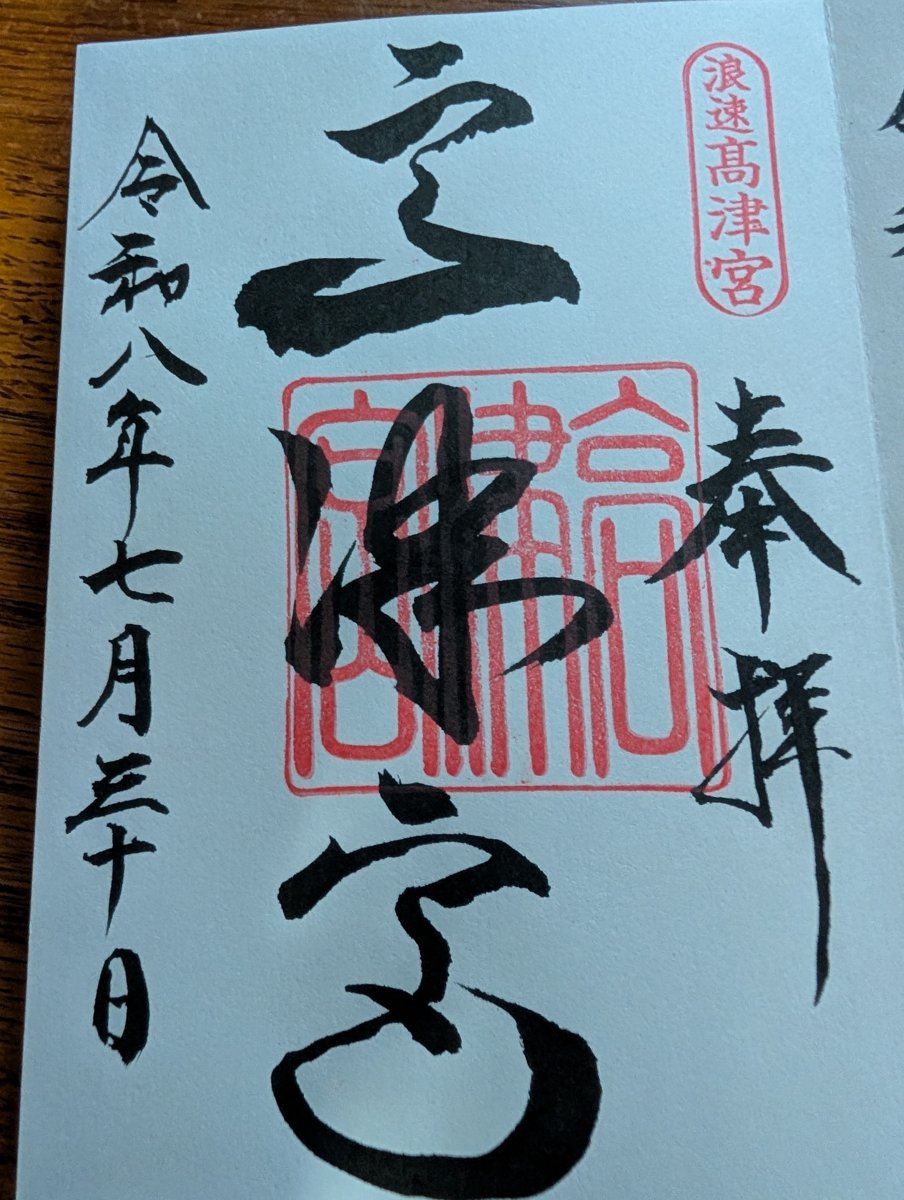 浪速髙津宮
奉拝
高津宮
高津宮
令和八年七月三十日